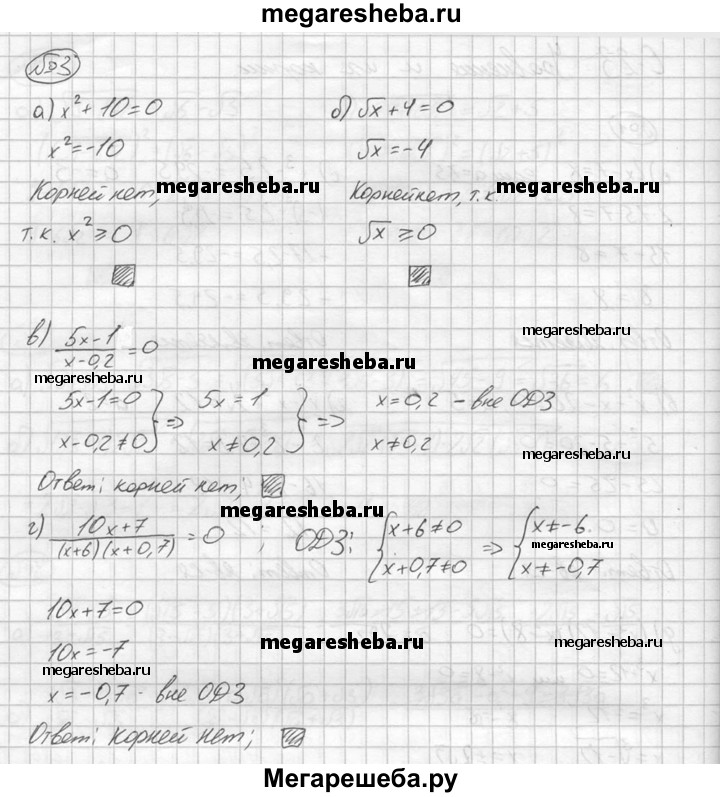 megaresheba.ru
№3
а) x² + 10 = 0
x² = -10
Корней нет,
т.к. x² ≥ 0
megaresheba.ru
б) √x + 4 = 0
√x = -4
Корней нет, т.к.
√x ≥ 0
megaresheba.ru
в) (5x-1)/(x-0,2) = 0
megaresheba.ru
megaresheba.ru
megaresheba.ru
5x-1=0 } => 5x = 1 } => x = 0,2 – вне ОДЗ
x-0,2≠0 } x ≠ 0,2 } x ≠ 0,2
megaresheba.ru
Ответ: корней нет;
megaresheba.ru
г) (10x+7)/((x+6)(x+0,7)) = 0 ; ОДЗ: { x+6≠0 => { x≠-6.
megaresheba.ru
{ x+0,7≠0 { x≠-0,7
10x+7=0
10x=-7
megaresheba.ru
megaresheba.ru
megaresheba.ru
x=-0,7 - вне ОДЗ
Ответ: корней нет;
Мегарешеба.ру